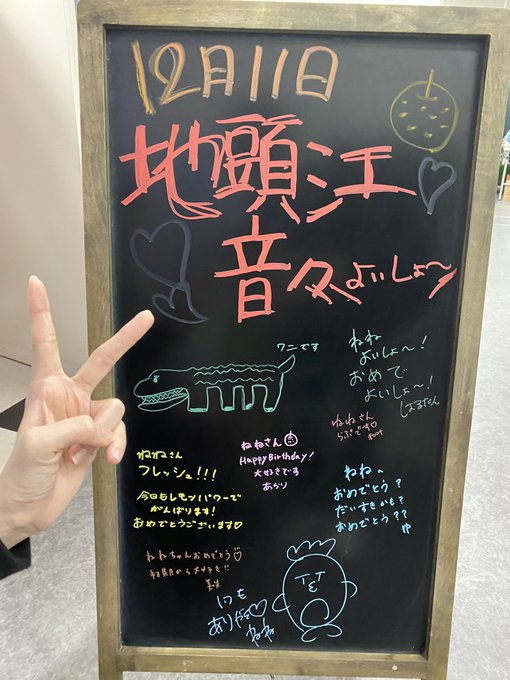 12月11日
地頭江
音々よいしょ〜
ワニです
ねね
よいしょ〜!
おめで
よいしょ〜!
ねねさん
らぶです♡
ねねさん
HappyBirthday!
大好きです
あかり
ねねさん
フレッシュ!!!
今日もレモンパワーで
がんばります!
おめでとうございます♡
ねね、
おめでとう?
だいすきかも?
おめでとう??
ゆ
ねねちゃんおめでとう♡
美咲
いつも
ありがとう♡
ねね